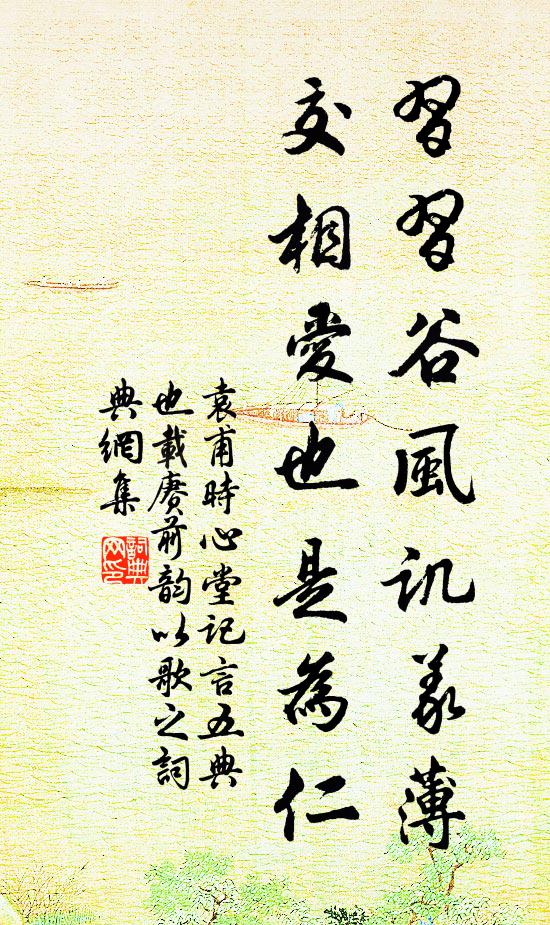 習習谷風訊義薄
交相愛也是為仁
袁甫時心堂記言五典
也載賡前韵以歌之詞
典網集
詞典網印